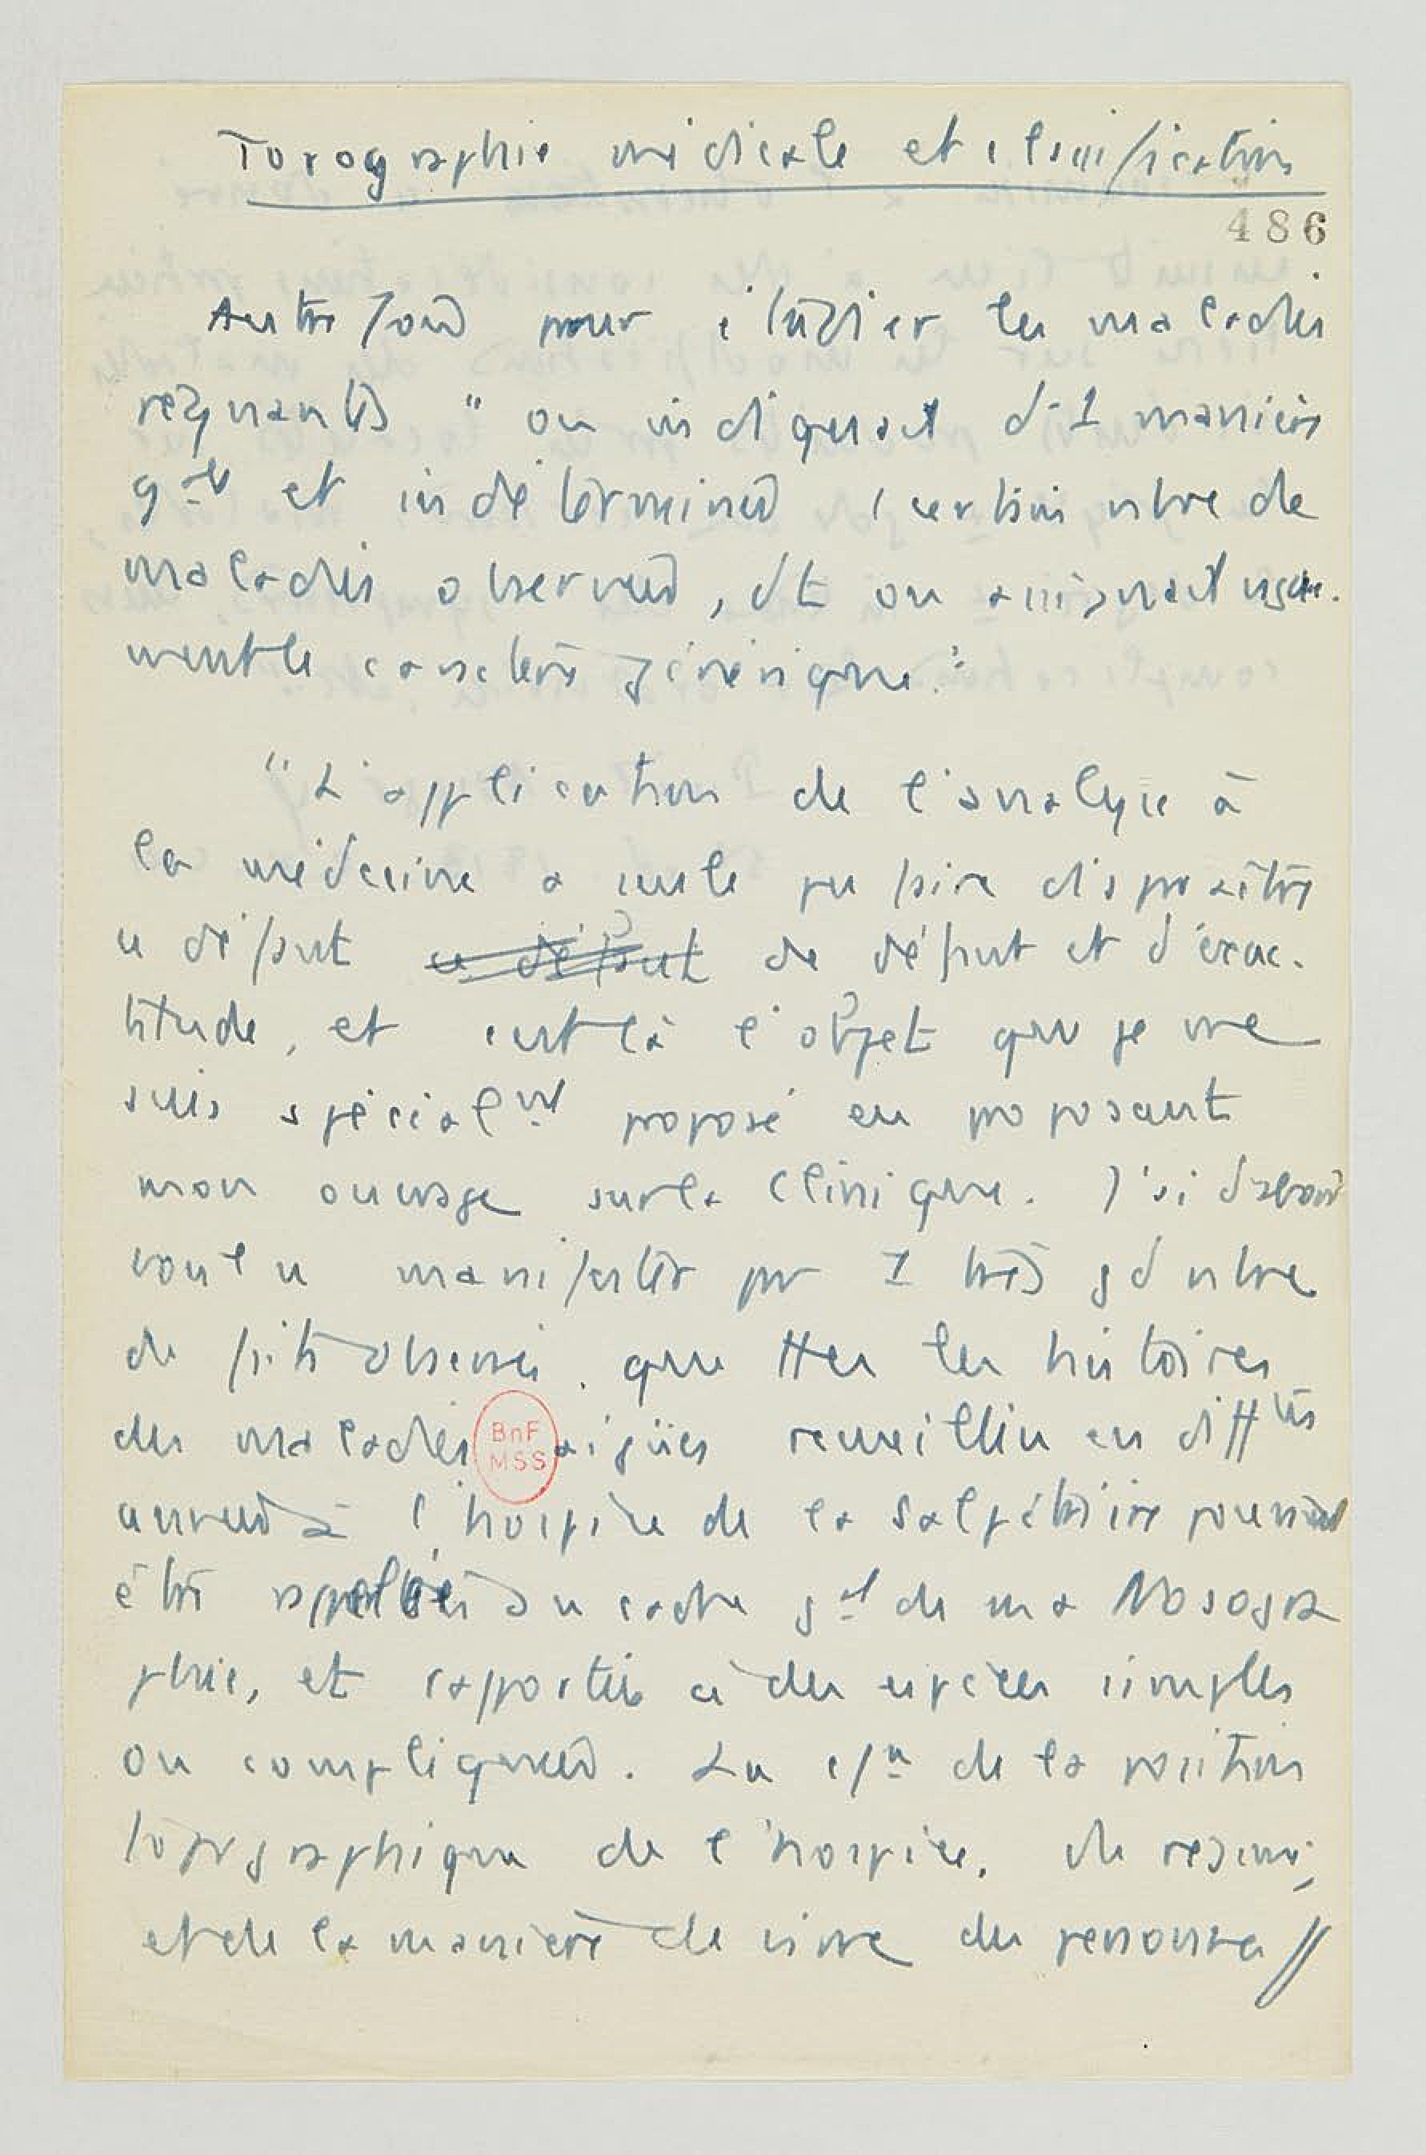 Topographie médicale et classification
486
Autrefois pour étudier les maladies
régnantes " on indiquait d'1 manière
gale et indéterminée 1 certain nbre de
maladies observées, dt on assignait vague-
ment le caractère générique."
"L'application de l'analyse à
la médecine a seule pu faire disparaître
ce défaut ce défaut de défaut et d'exac-
titude, et c'est là l'objet que je me
suis spécialmt proposé en proposant
mon ouvrage sur la clinique. J'ai d'abord
voulu manifester par 1 très gd nbre
de faits observés. que ttes les histoires
des maladies aigües recueillies en difftes
BnF
MSS
années à l'hospice de la Salpêtrière pouvaient
être au cadre gal de ma Nosogra
phie, et rapportées à des espèces simples
ou compliquées. La de la position
topographique de l'hospice, du régime,
et de la manière de vivre des personnes //